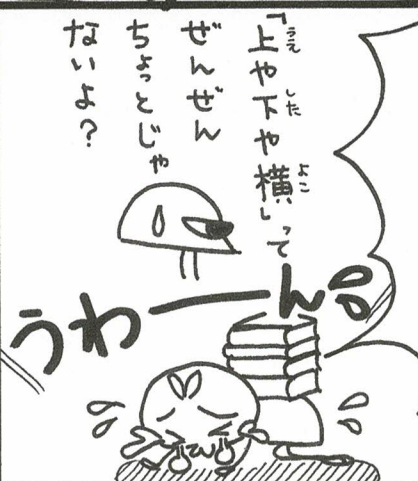 「上や下や横」って
ぜんぜん
ちょっとじゃ
ないよ？
うわーん